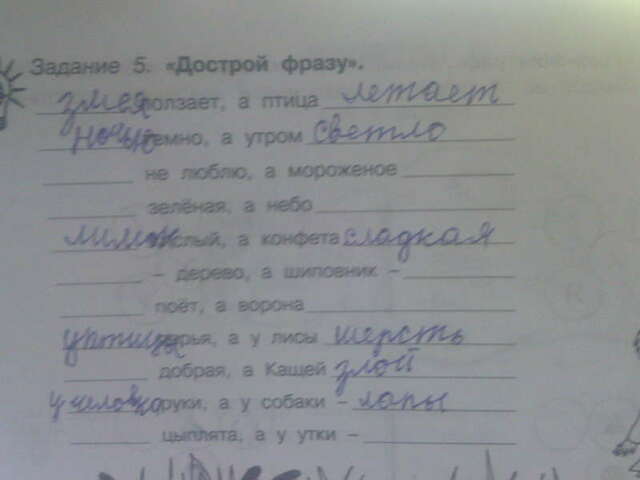 Задание 5. «Дострой фразу».
змея ползает, а птица летает
ночью темно, а утром светло
не люблю, а мороженое
зелёная, а небо
лимон кислый, а конфета сладкая
– дерево, а шиповник –
поёт, а ворона
у птицы перья, а у лисы шерсть
добрая, а Кащей злой
у человека руки, а у собаки – лапы
цыплята, а у утки –